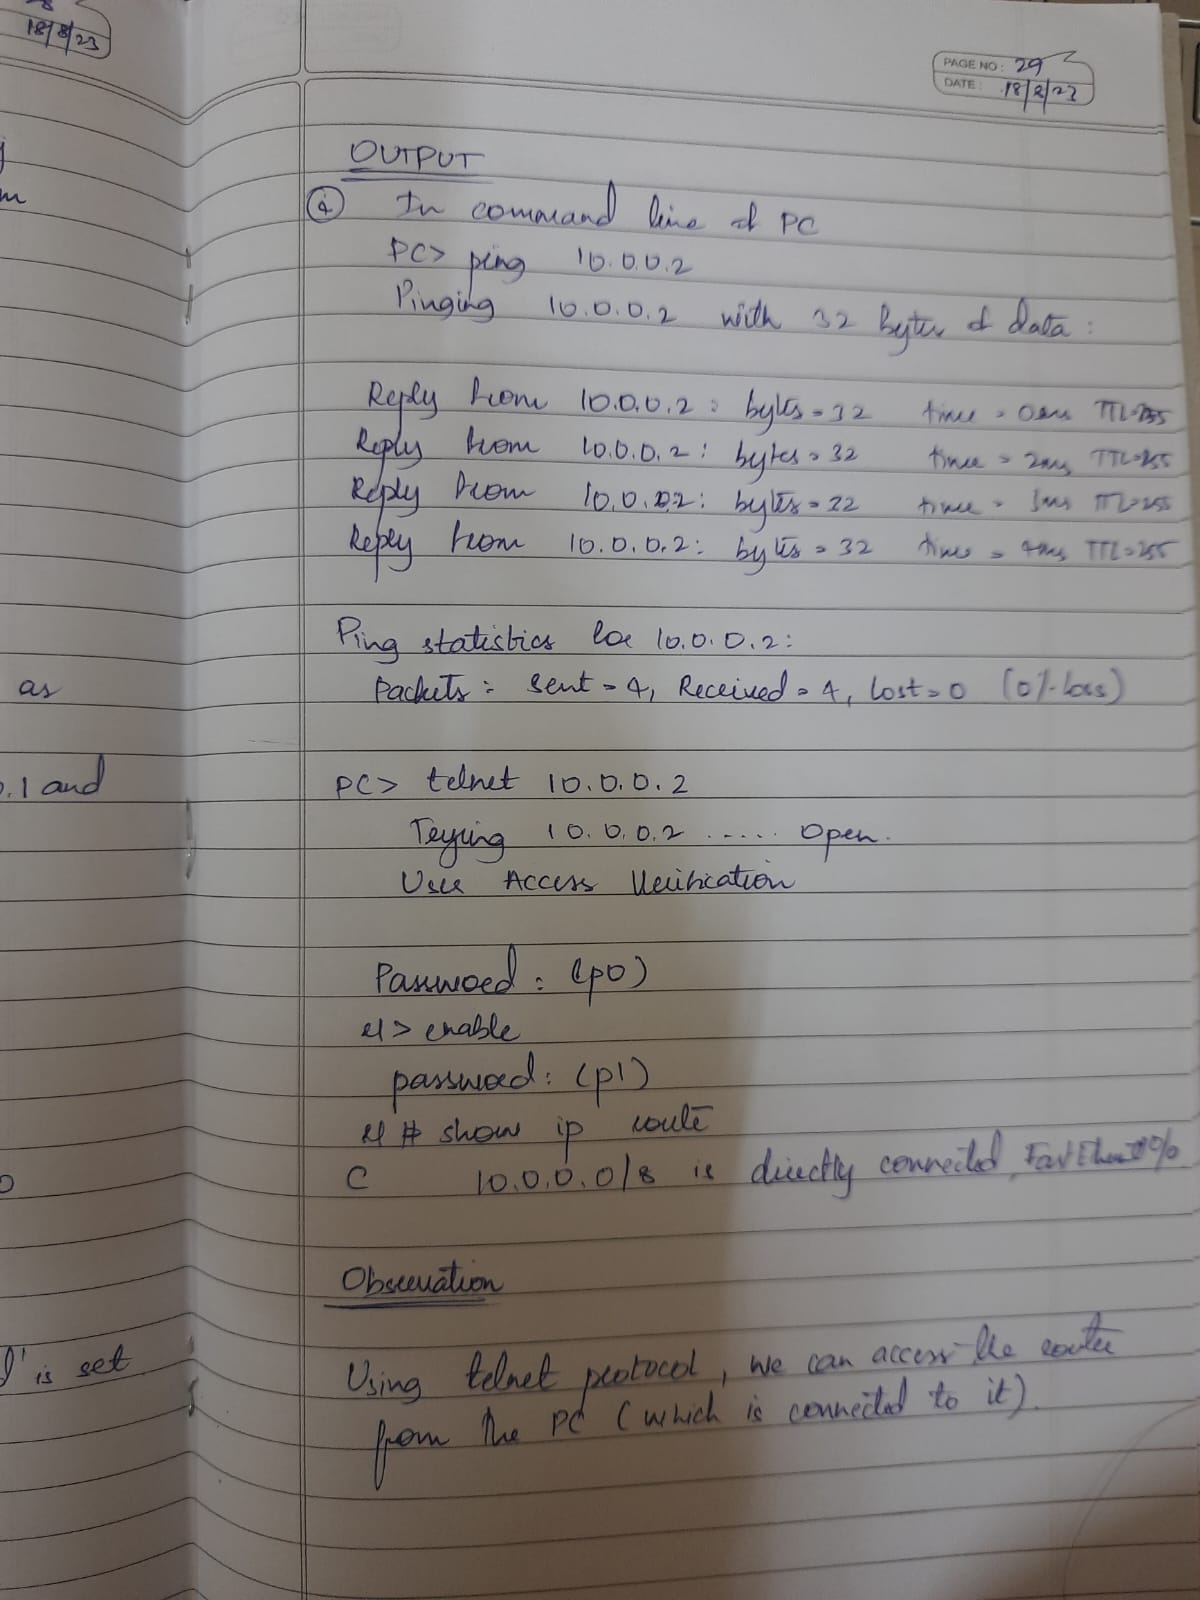 18/8/23
PAGE NO: 29
DATE: 18/8/23
OUTPUT
In command line of PC
PC> ping 10.0.0.2
Pinging 10.0.0.2 with 32 bytes of data:
Reply from 10.0.0.2: bytes=32 time=0ms TTL=255
Reply from 10.0.0.2: bytes=32 time=2ms TTL=255
Reply from 10.0.0.2: bytes=32 time= TTL=255
Reply from 10.0.0.2: bytes=32 time=4ms TTL=255
Ping statistics for 10.0.0.2:
Packets: Sent=4, Received=4, Lost=0 (0% loss)
as
PC> telnet 10.0.0.2
.1 and
Trying 10.0.0.2 ..... Open.
User Access Verification
Password: (p0)
r1> enable
password: (p1)
r1 # show ip route
C 10.0.0.0/8 is directly connected,
Observation
is set
Using telnet protocol, we can access the router
from the PC (which is connected to it).